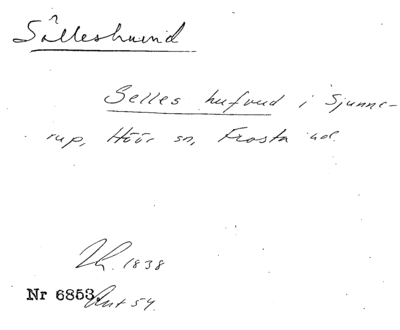 Sålleshuvud
Selles hufvud i Sjunne-
rup, Höör sn, Frosta hd.
1838
Nr 6853. Ant 54.